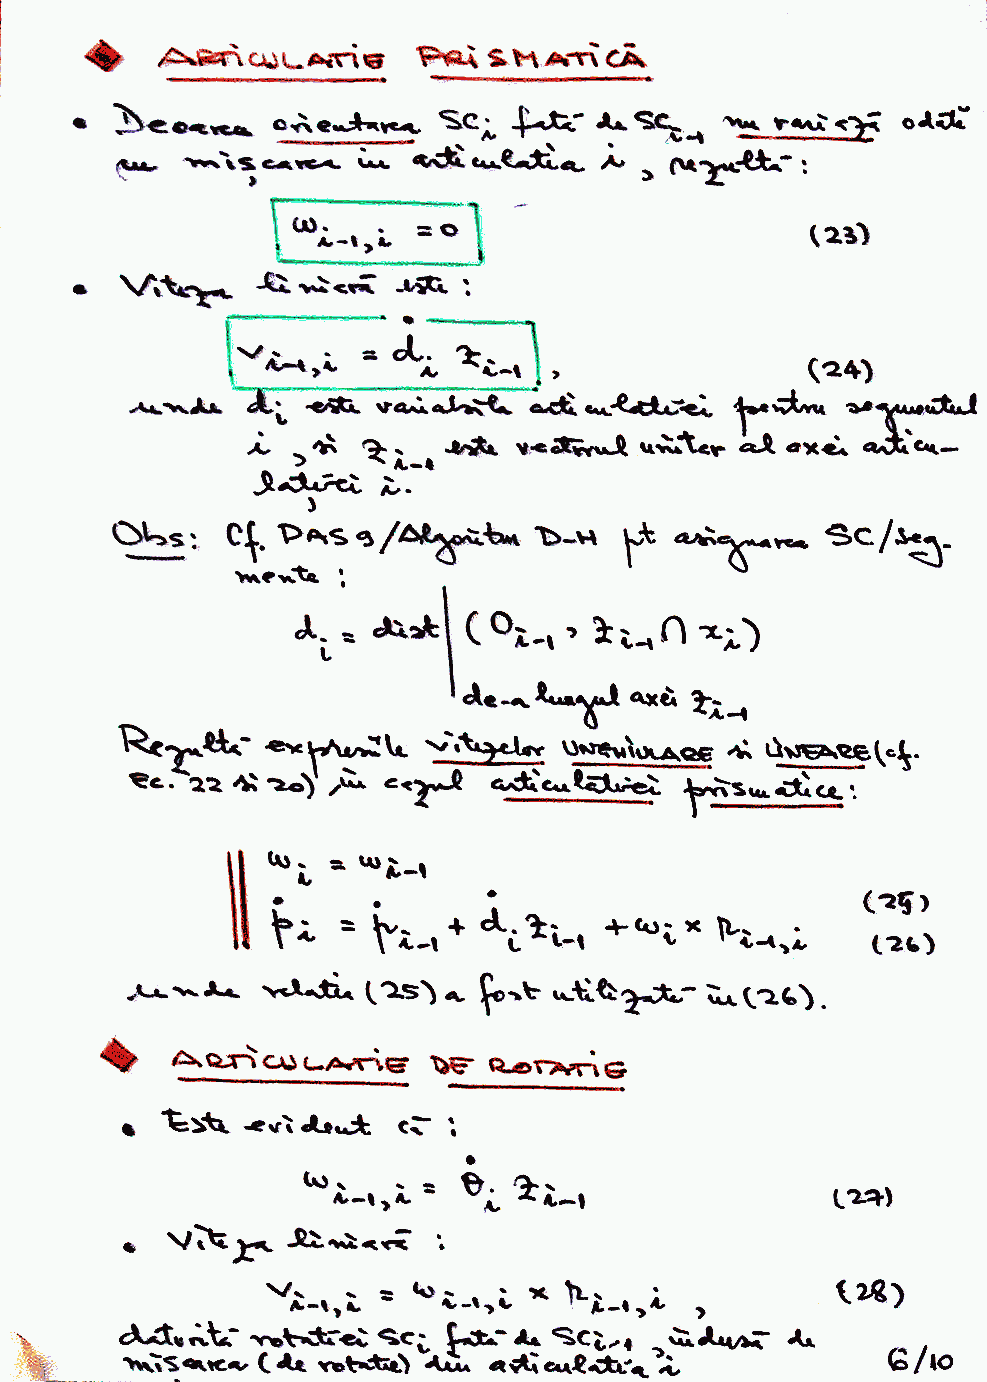 ARTICULATIE PRISMATICĂ
• Deoarece orientarea SCᵢ fată de SCᵢ₋₁ nu variază odată
cu mișcarea in articulatia i, rezultă:
ωᵢ₋₁,ᵢ = 0 (23)
• Viteza liniară este:
vᵢ₋₁,ᵢ = ḋᵢ zᵢ₋₁, (24)
unde dᵢ este variabila articulatiei pentru segmentul
i, si zᵢ₋₁ este vectorul unitar al axei articu-
lației i.
Obs: Cf. DAS9/Algoritm D-H pt asignarea SC/seg-
mente:
dᵢ = dist | (Oᵢ₋₁, zᵢ₋₁ ∩ xᵢ)
de-a lungul axei zᵢ₋₁
Rezultă expresiile vitezelor UNGHIULARE si LINEARE (cf.
Ec. 22 si 20) in cazul articulatiei prismatice:
ωᵢ = ωᵢ₋₁ (25)
ṗᵢ = ṗᵢ₋₁ + ḋᵢ zᵢ₋₁ + ωᵢ × rᵢ₋₁,ᵢ (26)
unde relatia (25) a fost utilizată in (26).
ARTICULATIE DE ROTATIE
• Este evident că:
ωᵢ₋₁,ᵢ = θ̇ᵢ zᵢ₋₁ (27)
• Viteza liniară:
vᵢ₋₁,ᵢ = ωᵢ₋₁,ᵢ × rᵢ₋₁,ᵢ, (28)
datorită rotatiei SCᵢ fată de SCᵢ₋₁, indusă de
miscarea (de rotatie) din articulatia i
6/10